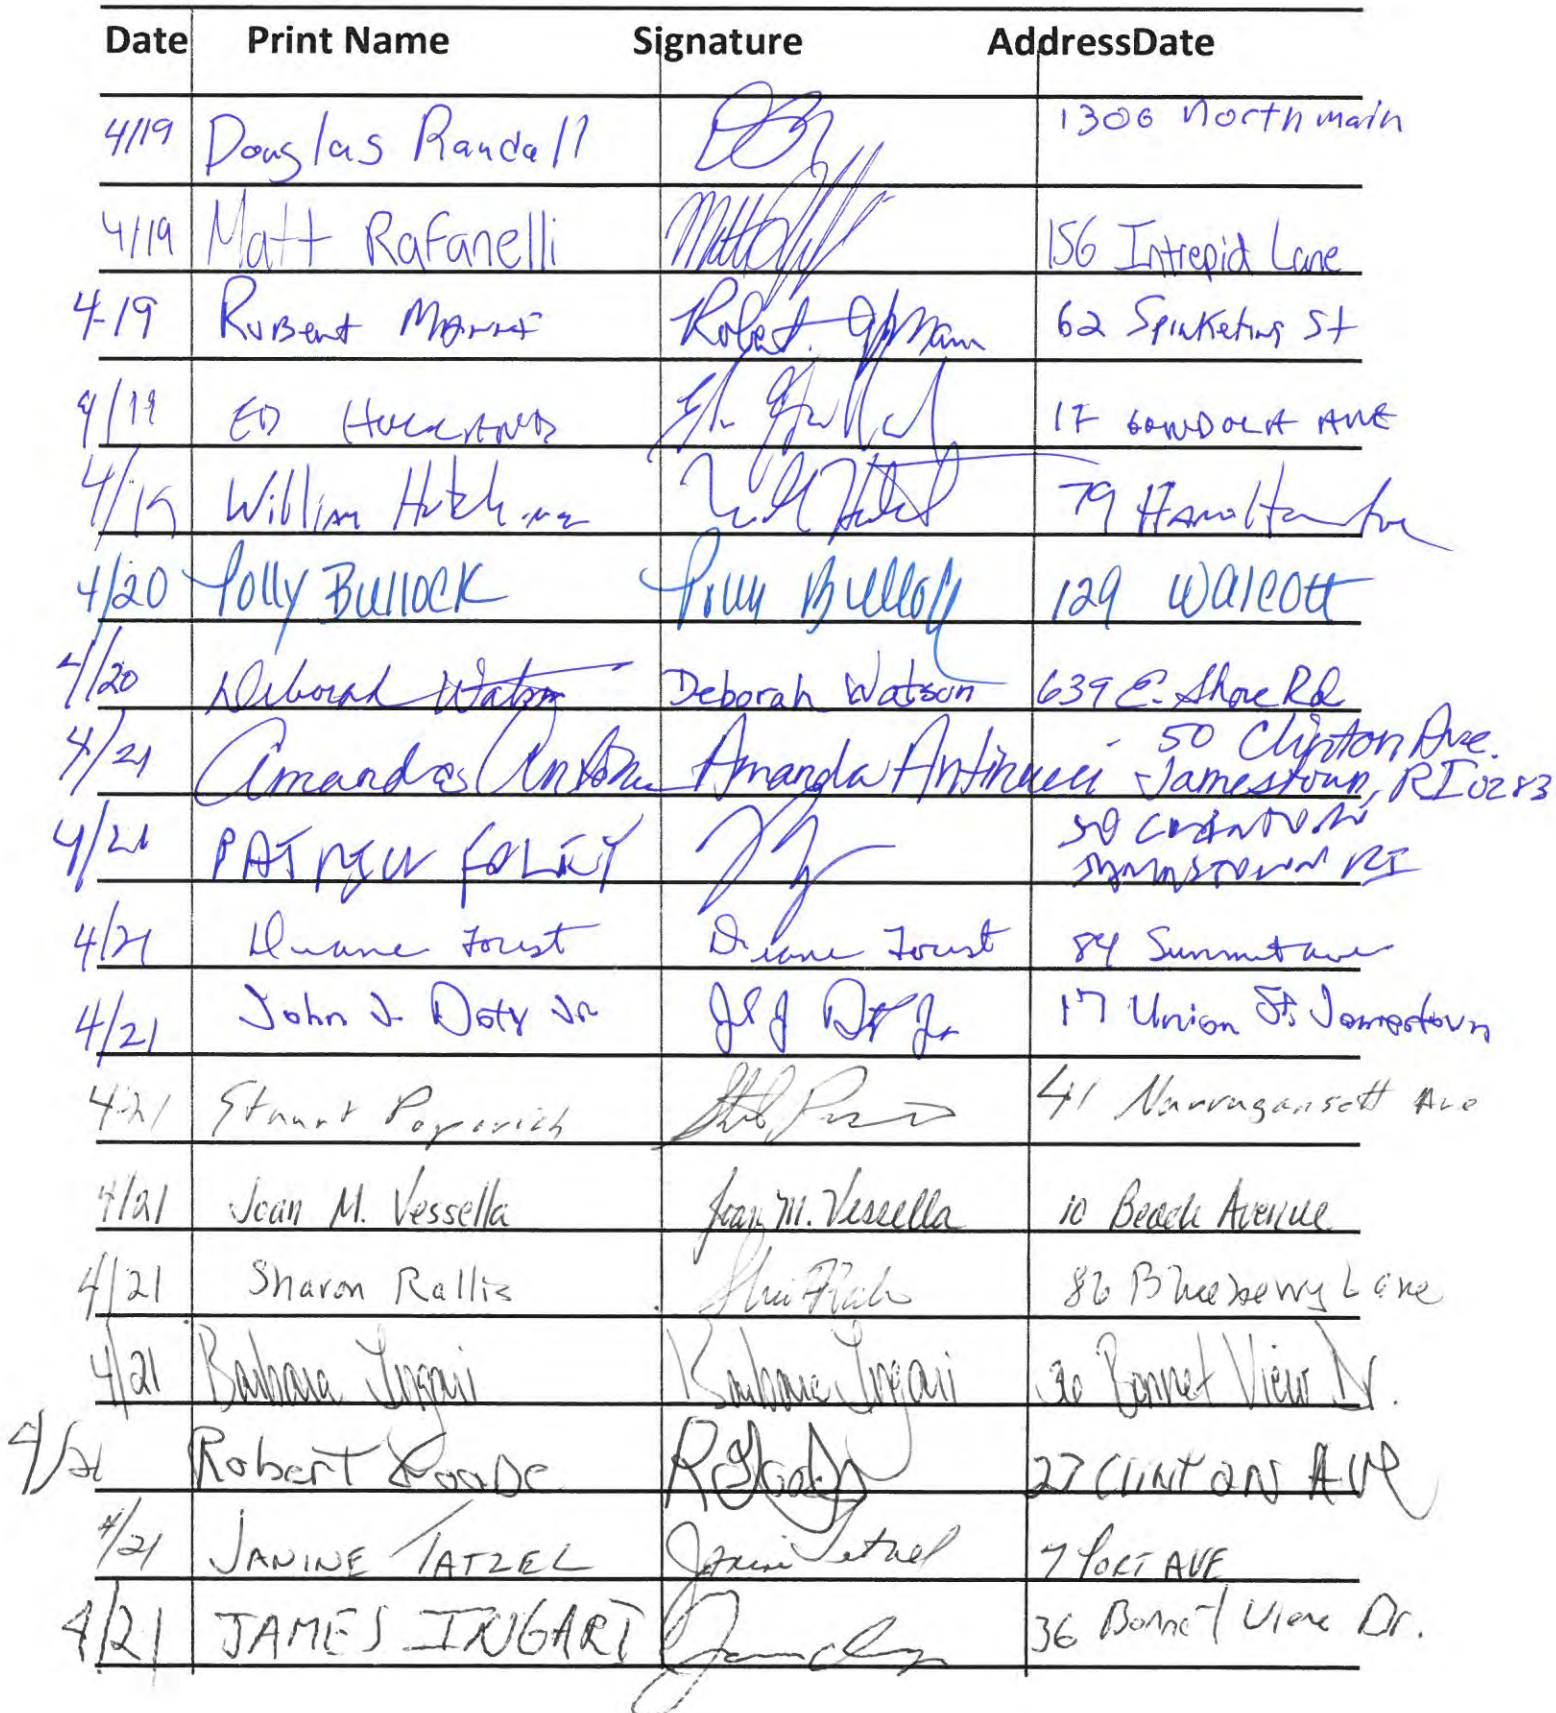 Date Print Name Signature AddressDate
4/19 Douglas Randall 1306 North main
4/19 Matt Rafanelli 156 Intrepid Lane
4-19 Robert 62 St
4/19 ED 17 GONDOLA AVE
4/19 William 79 Hamilton Ave
4/20 Polly Bullock Polly Bullock 129 Walcott
4/20 Deborah Watson Deborah Watson 639 E. Shore Rd
4/21 Amanda Antinucci Amanda Antinucci - 50 Clinton Ave.
Jamestown, RI 0283
4/21 PATRICK FOLEY 50 CLINTON AV
JAMESTOWN RI
4/21 Diane 84 Summit ave
4/21 John J. Doty Jr J J Doty Jr 17 Union St. Jamestown
4-21 Stuart Popovich 41 Narragansett Ave
4/21 Joan M. Vessella Joan M. Vessella 10 Beach Avenue
4/21 Sharon Rallis 86 Blueberry Lane
4/21 Barbara Ingari Barbara Ingari 36 Bonnet View Dr.
4/21 Robert 27 CLINTON AVE
4/21 JANINE TATZEL Janine Tatzel 7 PORT AVE
4/21 JAMES INGARI 36 Bonnet View Dr.